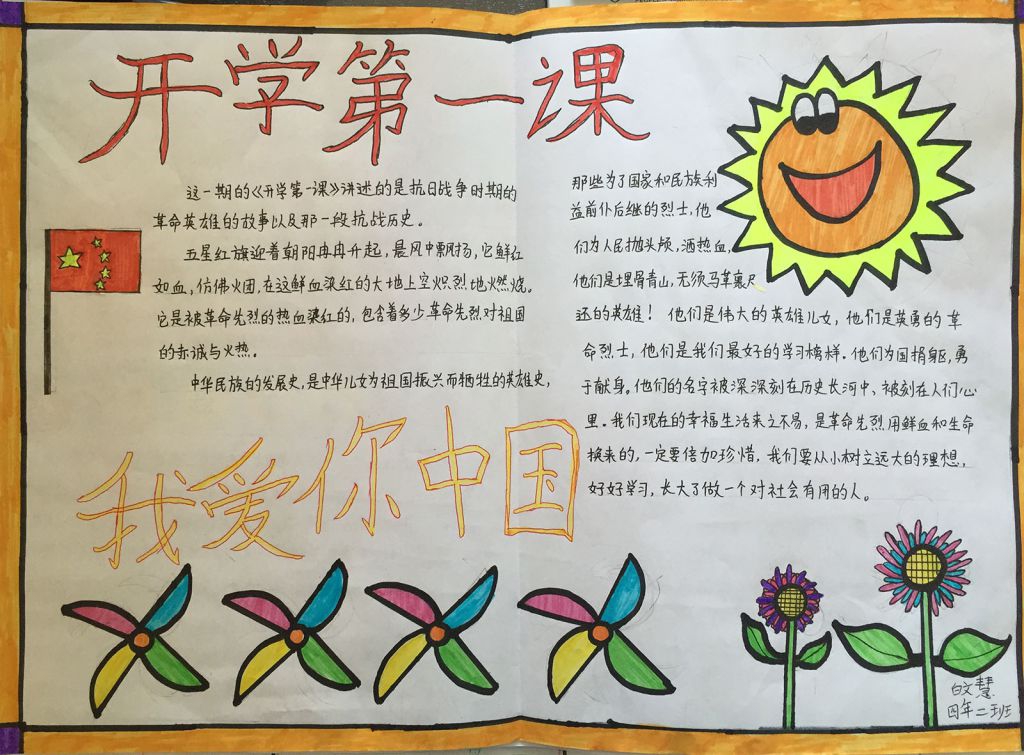 开学第一课
这一期的《开学第一课》讲述的是抗日战争时期的
革命英雄的故事以及那一段抗战历史。
五星红旗迎着朝阳冉冉升起，晨风中飘扬，它鲜红
如血，仿佛火团，在这鲜血染红的大地上空炽烈地燃烧。
它是被革命先烈的热血染红的，包含着多少革命先烈对祖国
的赤诚与火热。
中华民族的发展史，是中华儿女为祖国振兴而牺牲的英雄史，
那些为了国家和民族利
益前仆后继的烈士，他
们为人民抛头颅，洒热血，
他们是埋骨青山，无须马革裹尸
还的英雄！他们是伟大的英雄儿女，他们是英勇的革
命烈士，他们是我们最好的学习榜样。他们为国捐躯，勇
于献身。他们的名字被深深刻在历史长河中、被刻在人们心
里。我们现在的幸福生活来之不易，是革命先烈用鲜血和生命
换来的，一定要倍加珍惜，我们要从小树立远大的理想，
好好学习，长大了做一个对社会有用的人。
我爱你中国
白文慧
四年二班